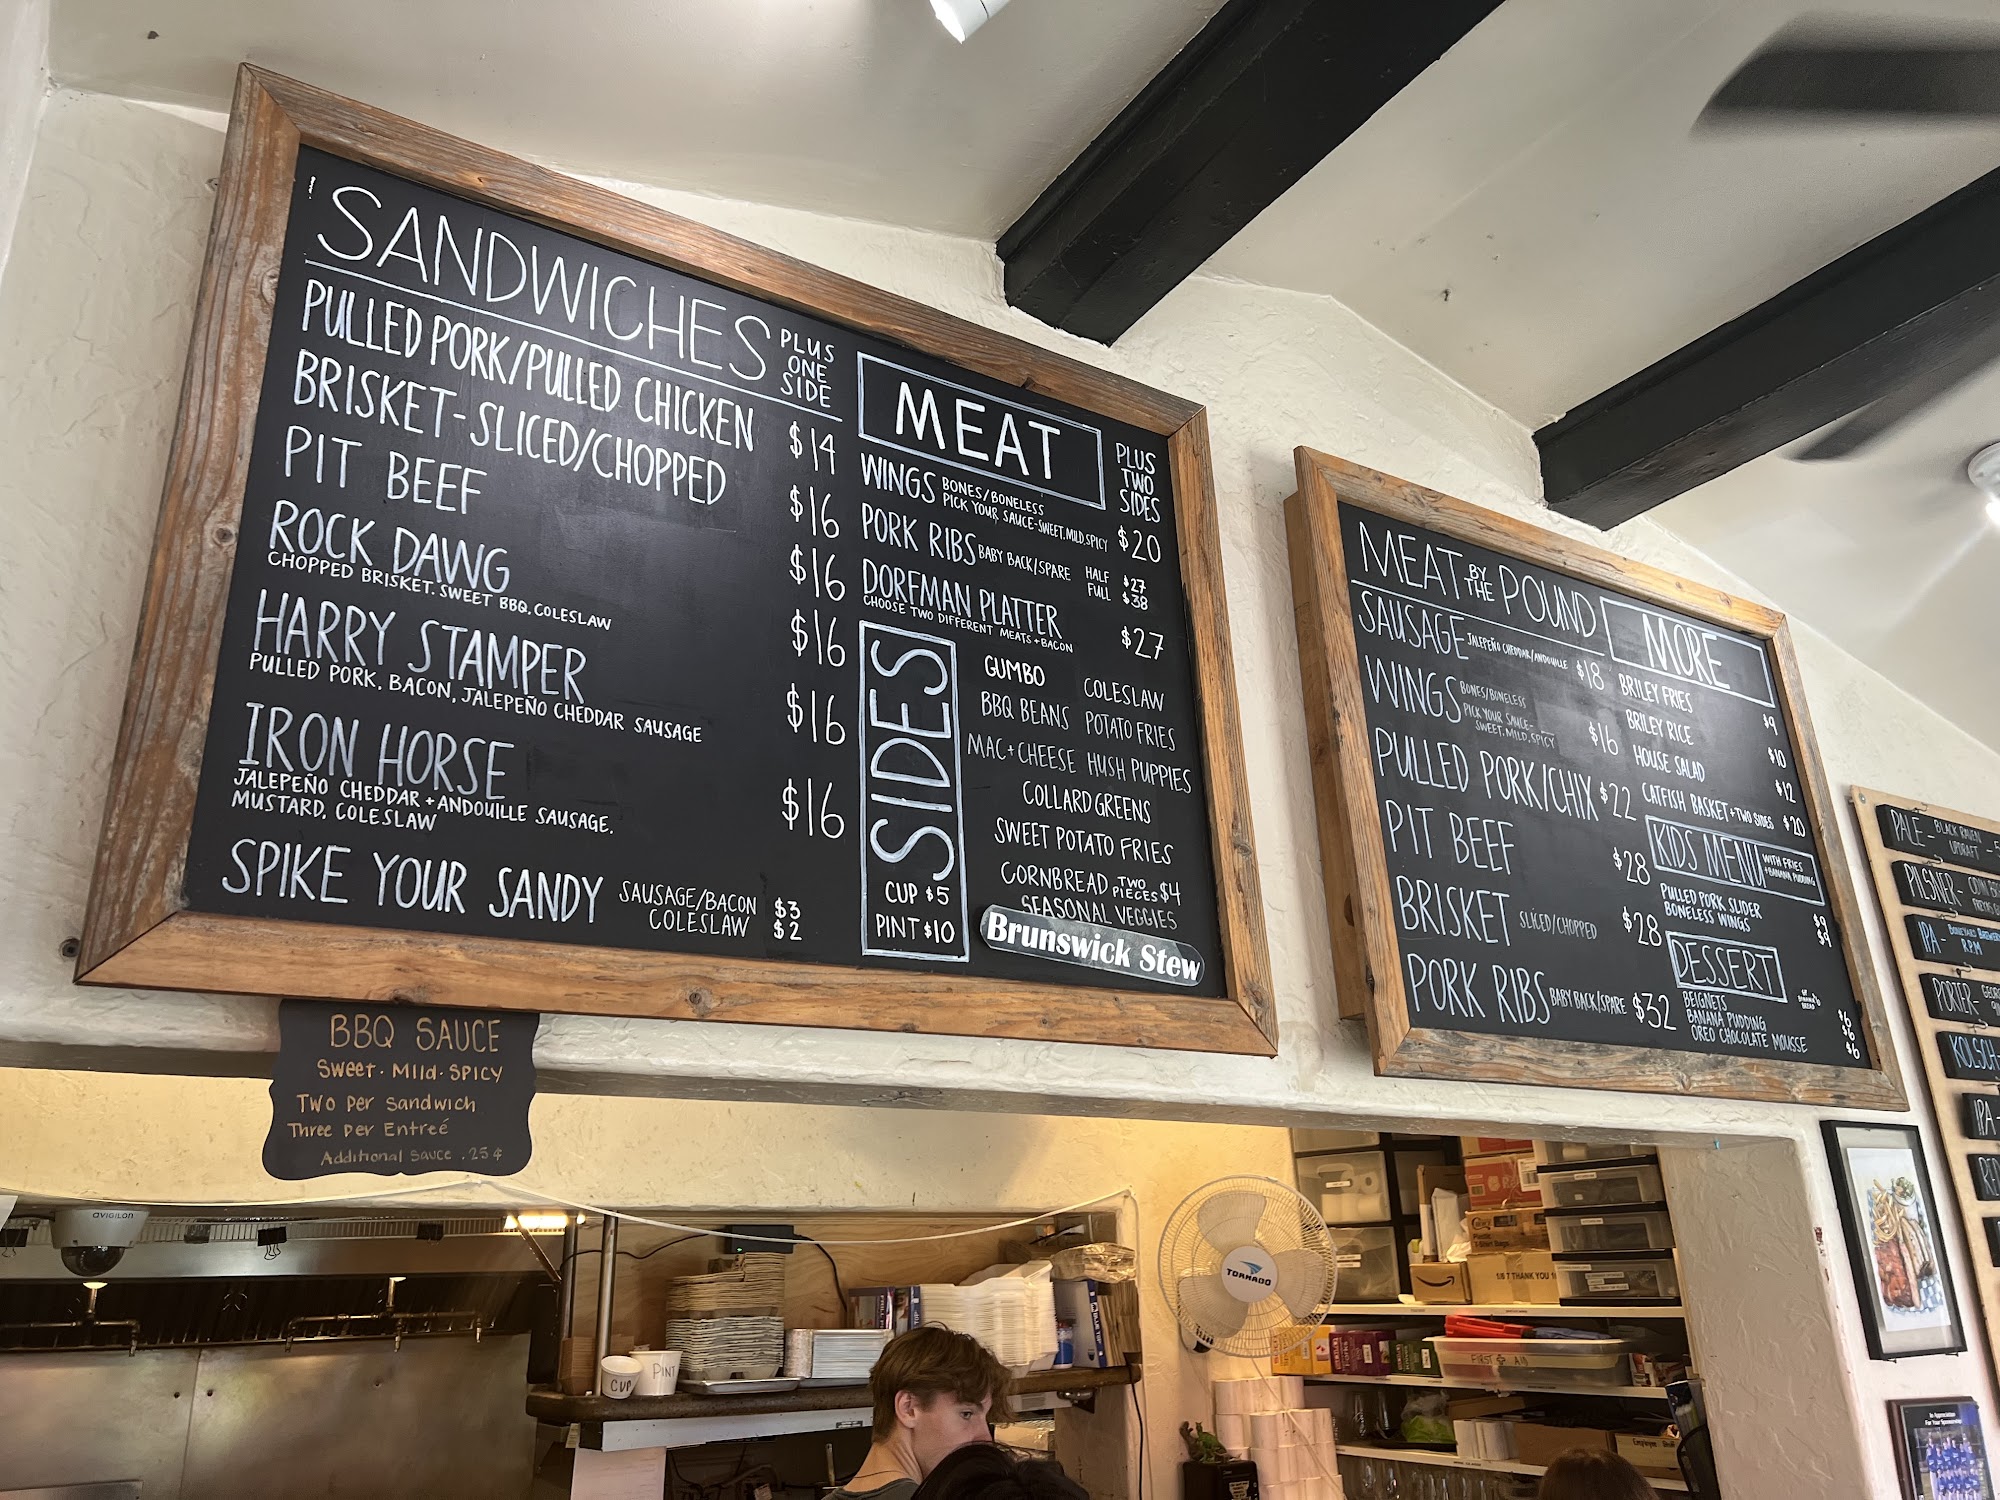 SANDWICHES
PLUS
ONE
SIDE
PULLED PORK/PULLED CHICKEN $14
BRISKET-SLICED/CHOPPED $16
PIT BEEF $16
ROCK DAWG $16
CHOPPED BRISKET. SWEET BBQ. COLESLAW
HARRY STAMPER $16
PULLED PORK, BACON, JALEPEÑO CHEDDAR SAUSAGE
IRON HORSE $16
JALEPEÑO CHEDDAR + ANDOUILLE SAUSAGE,
MUSTARD, COLESLAW
SPIKE YOUR SANDY
SAUSAGE/BACON $3
COLESLAW $2
MEAT
PLUS
TWO
SIDES
WINGS BONES/BONELESS
PICK YOUR SAUCE-SWEET.MILD.SPICY $20
PORK RIBS BABY BACK/SPARE HALF $27
FULL $38
DORFMAN PLATTER $27
CHOOSE TWO DIFFERENT MEATS + BACON
SIDES
CUP $5
PINT $10
GUMBO
COLESLAW
BBQ BEANS
POTATO FRIES
MAC+CHEESE
HUSH PUPPIES
COLLARD GREENS
SWEET POTATO FRIES
CORNBREAD TWO PIECES $4
SEASONAL VEGGIES
Brunswick Stew
MEAT BY THE POUND
SAUSAGE JALEPEÑO CHEDDAR/ANDOUILLE $18
WINGS BONES/BONELESS
PICK YOUR SAUCE-
SWEET.MILD.SPICY $16
PULLED PORK/CHIX $22
PIT BEEF $28
BRISKET SLICED/CHOPPED $28
PORK RIBS BABY BACK/SPARE $32
MORE
BRILEY FRIES $9
BRILEY RICE $10
HOUSE SALAD $12
CATFISH BASKET + TWO SIDES $20
KIDS MENU WITH FRIES
+ BANANA PUDDING
PULLED PORK SLIDER $9
BONELESS WINGS $9
DESSERT
BEIGNETS $6
BANANA PUDDING $6
OREO CHOCOLATE MOUSSE $6
BBQ SAUCE
Sweet · Mild · SPICY
Two per sandwich
Three per Entreé
Additional sauce .25¢
PALE - BLACK RAVEN
UPDRAFT
PILSNER -
IPA - BONEYARD
R.P.M
PORTER -
KOLSCH
IPA -
AVIGILON
CUP
PINT
TORNADO
THANK YOU
FIRST + AID
In Appreciation
For Your Sponsorship